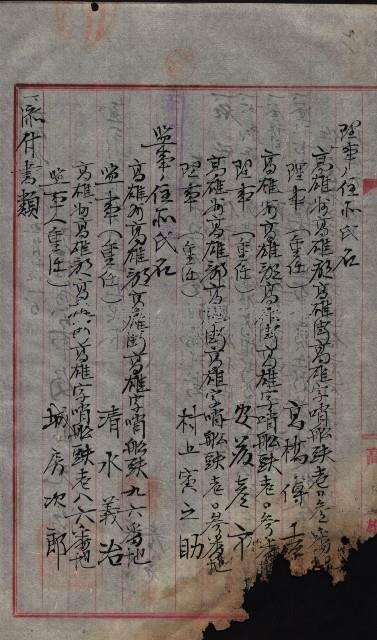 理事ノ住所氏名
高雄州高雄郡高雄街高雄字哨船頭壱〇参番地
理事(重任) 高橋傳吉
高雄州高雄郡高雄街高雄字哨船頭壱〇参番地
理事(重任) 安藤
高雄州高雄郡高雄街高雄字哨船頭壱〇参番地
理事(重任) 村上寅之助
監事ノ住所氏名
高雄州高雄郡高雄街高雄字哨船頭九六番地
監事(重任) 清水義治
高雄州高雄郡高雄街高雄字哨船頭壱八六番地
監事(重任) 次郎
一、添付書類